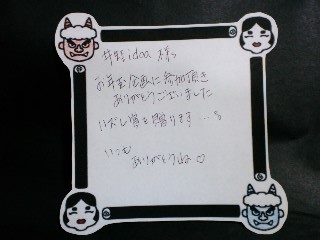 idea 様へ
お年玉企画に参加頂き
ありがとうございました
贈ります....。
いつも
ありがとうね♡